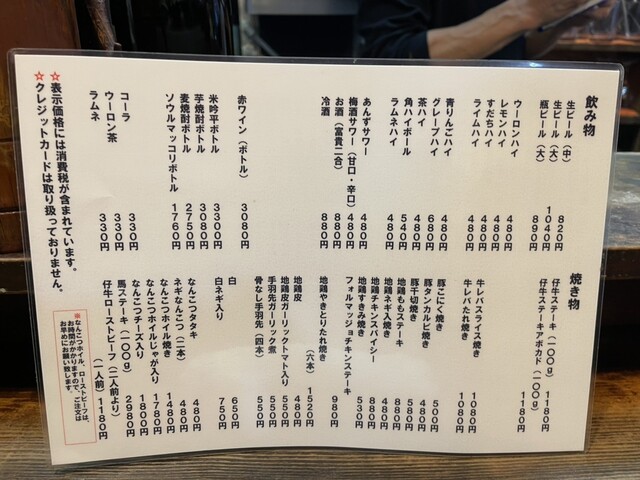 飲み物
生ビール（中） 820円
生ビール（大） 1040円
瓶ビール（大） 890円
ウーロンハイ 480円
レモンハイ 480円
すだちハイ 480円
ライムハイ 480円
青りんごハイ 480円
グレープハイ 680円
茶ハイ 480円
角ハイボール 540円
ラムネハイ 480円
あんずサワー 480円
梅酒サワー（甘口・辛口） 480円
お酒（富貴二合） 880円
冷酒 880円
赤ワイン（ボトル） 3080円
米吟平ボトル 3300円
芋焼酎ボトル 3080円
麦焼酎ボトル 2750円
ソウルマッコリボトル 1760円
コーラ 330円
ウーロン茶 330円
ラムネ 330円
焼き物
仔牛ステーキ（100g） 1180円
仔牛ステーキアボカド（100g） 1180円
牛レバスライス焼き 1080円
牛レバたれ焼き 1080円
豚こにく焼き 500円
豚タンカルビ焼き 480円
豚干切焼き 580円
地鶏ももステーキ 880円
地鶏ネギ入焼き 480円
地鶏チキンスパイシー 880円
地鶏すきみ焼き 530円
フォルマッジョチキンステーキ 980円
地鶏やきとりたれ焼き（六本） 1520円
地鶏皮 480円
地鶏皮ガーリックトマト入り 550円
手羽先ガーリック煮 550円
骨なし手羽先（四本） 550円
白 650円
白ネギ入り 750円
なんこつタタキ 480円
ネギなんこつ（二本） 480円
なんこつホイル焼き 1480円
なんこつホイルじゃが入り 1780円
なんこつチーズ入り 1800円
馬ステーキ（100g） 2980円
仔牛ローストビーフ（二人前より）（一人前） 1180円
☆表示価格には消費税が含まれています。
☆クレジットカードは取り扱っておりません。
※なんこつホイル、ローストビーフは、
お時間がかかりますので、ご注文は
お早めにお願い致します。